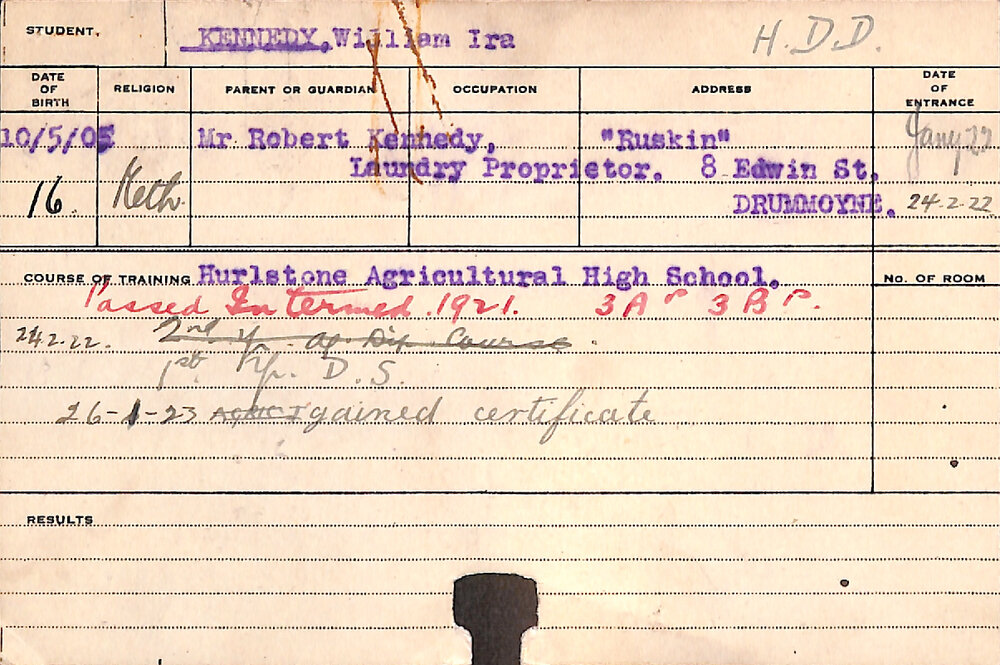 STUDENT. KENNEDY, William Ira H.D.D.
DATE OF BIRTH RELIGION PARENT OR GUARDIAN OCCUPATION ADDRESS DATE OF ENTRANCE
10/5/05 Mr Robert Kennedy, "Ruskin" Jany 22
Laundry Proprietor. 8 Edwin St,
16 Meth. DRUMMOYNE. 24.2.22
COURSE OF TRAINING Hurlstone Agricultural High School. No. OF ROOM
Passed Intermed. 1921. 3A 3B
24.2.22. 2nd yr. Ag. Dip Course.
1st Yr. D.S.
26-1-23 gained certificate
RESULTS